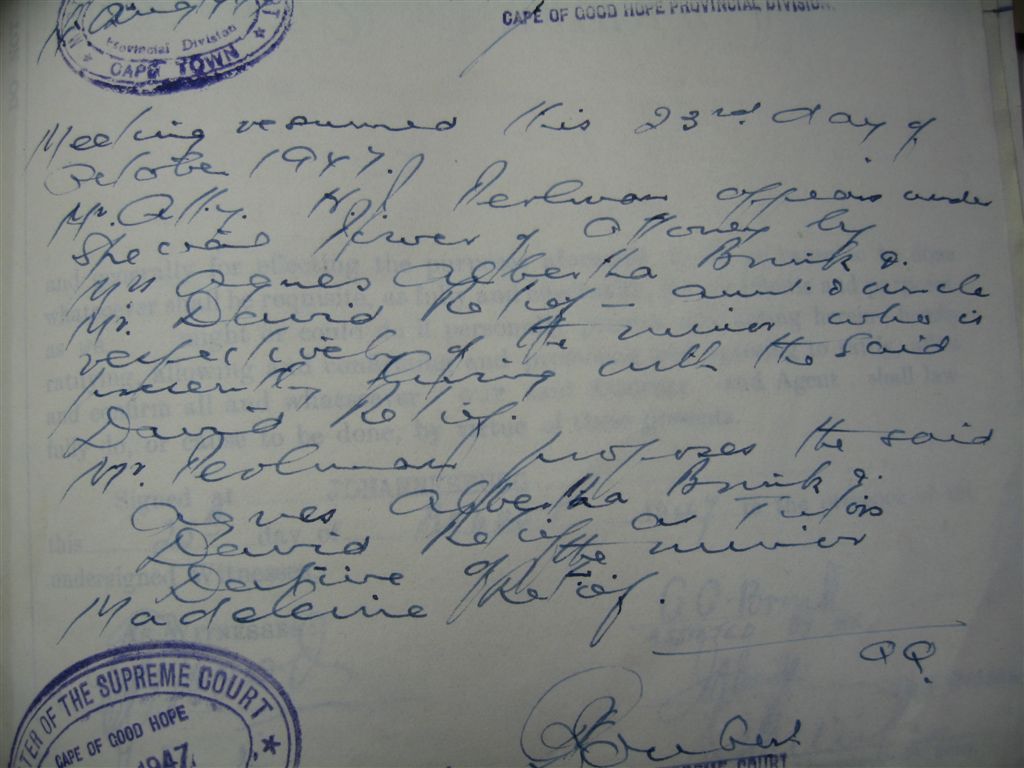 Provincial Division
CAPE TOWN
CAPE OF GOOD HOPE PROVINCIAL DIVISION.
Meeting resumed this 23rd day of
October 1947.
Mr. Atty. H. J. Perlman appears under
Special Power of Attorney by
Mrs Agnes Albertha Brink &
Mr. David Retief – aunt & uncle
respectively of the minor, who is
presently living with the said
David Retief.
Mr. Perlman proposes the said
Agnes Albertha Brink &
David Retief as Tutors
Dative of the minor
Madeleine Retief.
QQ.
TER OF THE SUPREME COURT
CAPE OF GOOD HOPE
1947